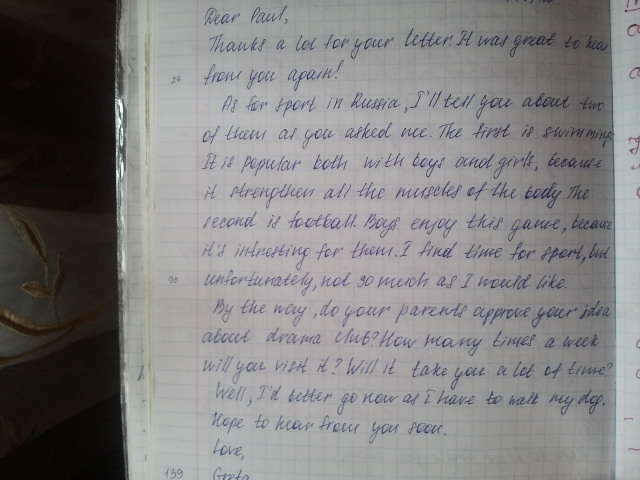 Dear Paul,
Thanks a lot for your letter. It was great to hear
24 from you again!
As for sport in Russia, I'll tell you about two
of them as you asked me. The first is swimming.
It is popular both with boys and girls, because
it strengthen all the muscles of the body. The
second is football. Boys enjoy this game, because
it's intresting for them. I find time for sport, but
90 unfortunately, not so much as I would like.
By the way, do your parents approve your idea
about drama club? How many times a week
will you visit it? Will it take you a lot of time?
Well, I'd better go now as I have to walk my dog.
Hope to hear from you soon.
Love,
139 Greta